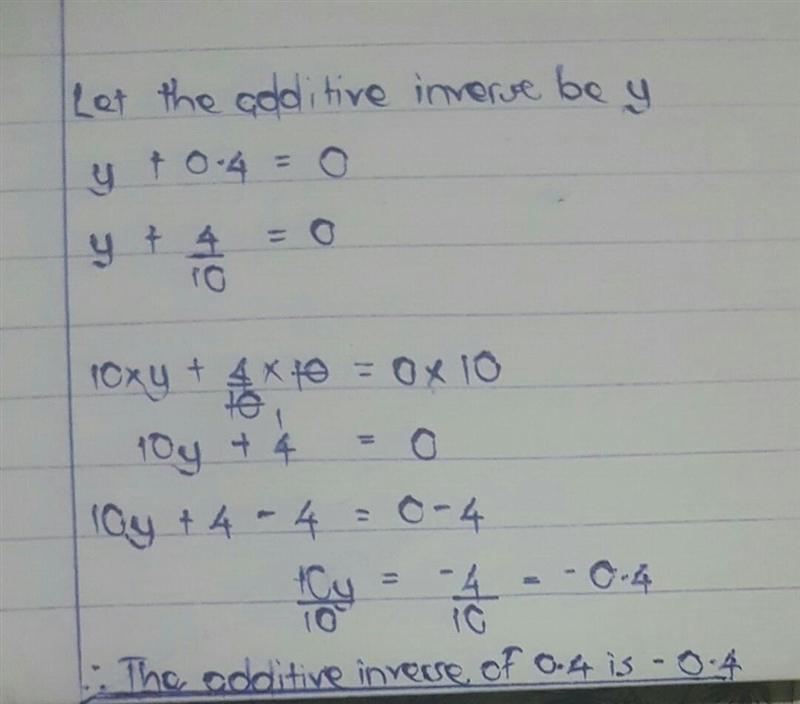 Let the additive inverse be y
y + 0.4 = 0
y + 4/10 = 0
10xy + 4/10 × 10 = 0 × 10
10y + 4 = 0
10y + 4 - 4 = 0 - 4
10y/10 = -4/10 = -0.4
∴ The additive inverse of 0.4 is -0.4